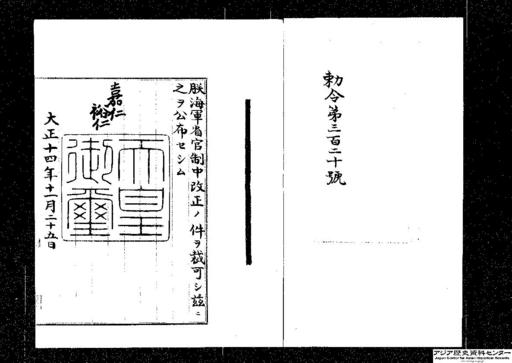 勅令第三百二十號
朕海軍省官制中改正ノ件ヲ裁可シ玆ニ
之ヲ公布セシム
嘉仁
裕仁
天皇
御璽
大正十四年十一月二十五日
アジア歴史資料センター
Japan Center for Asian Historical Records